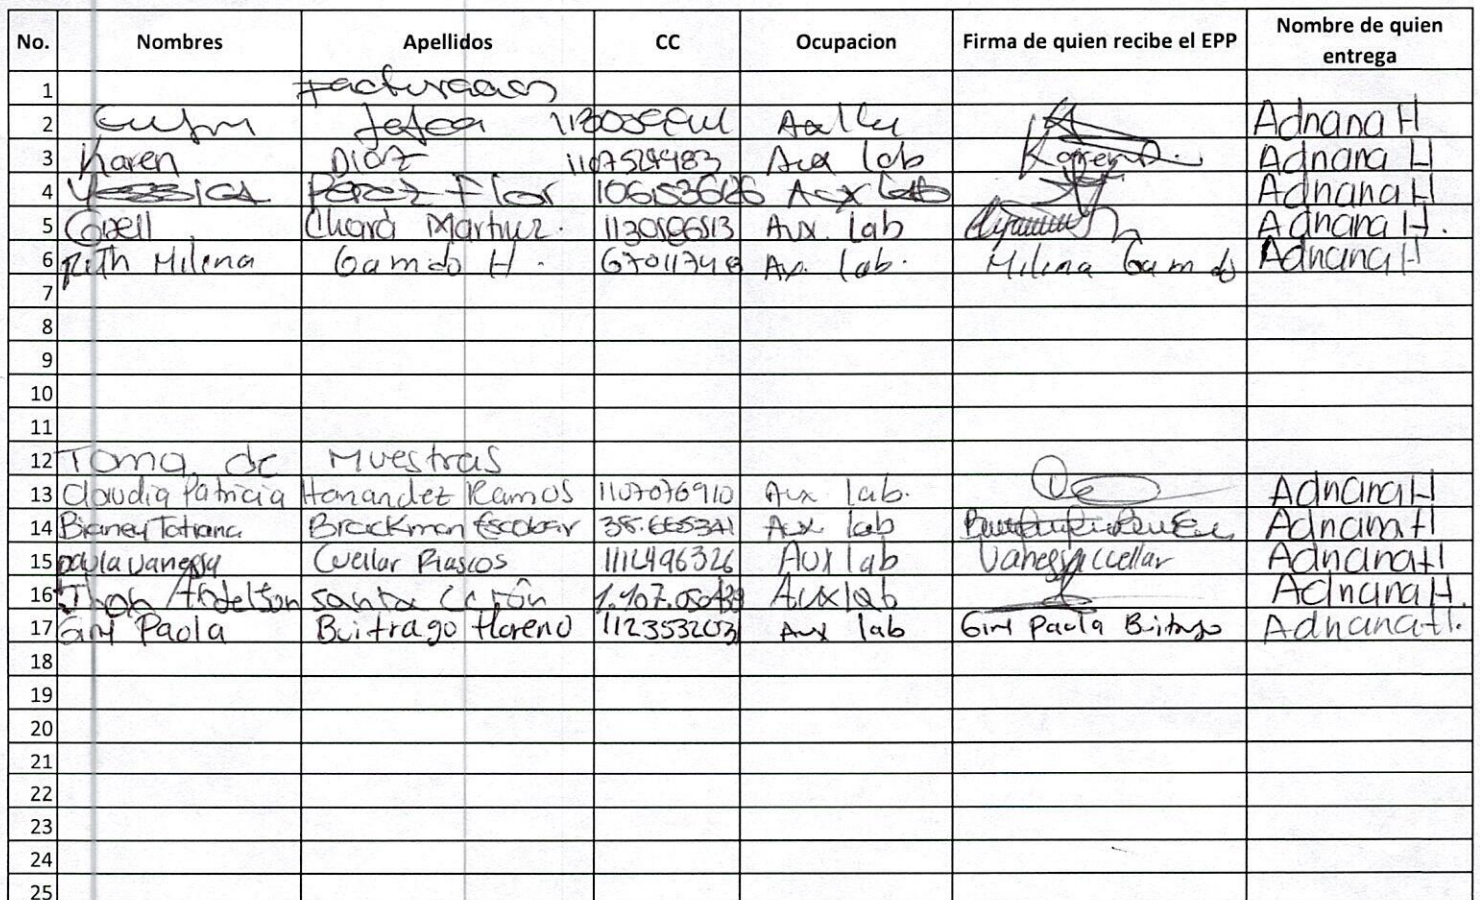 No. Nombres Apellidos CC Ocupacion Firma de quien recibe el EPP Nombre de quien entrega
1 Facturacion
2 Adriana H
3 Karen Diaz 1107524483 Aux lab Karen D. Adriana H
4 Yessica Perez Flor Aux lab Adriana H
5 Chara Martinez. Aux. lab Adriana H.
6 Ruth Milena Garrido H. Ax. lab. Milena Garrido Adriana H
7
8
9
10
11
12 Toma de Muestras
13 Claudia Patricia Hernandez Ramos 1107076910 Aux lab. Adriana H
14 Tatiana Brackman Escobar 38.665341 Aux lab Adriana H
15 paula vanessa Cuellar Riascos 1112496326 Aux lab Vanessa cuellar Adriana H
16 Auxlab Adriana H.
17 Paola Buitrago Moreno Aux lab Paola Buitrago Adriana H.
18
19
20
21
22
23
24
25